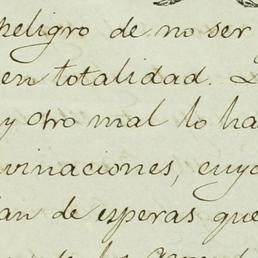 peligro de no ser
en totalidad.
y otro mal lo ha
vinaciones, cuyo
an de esperas que